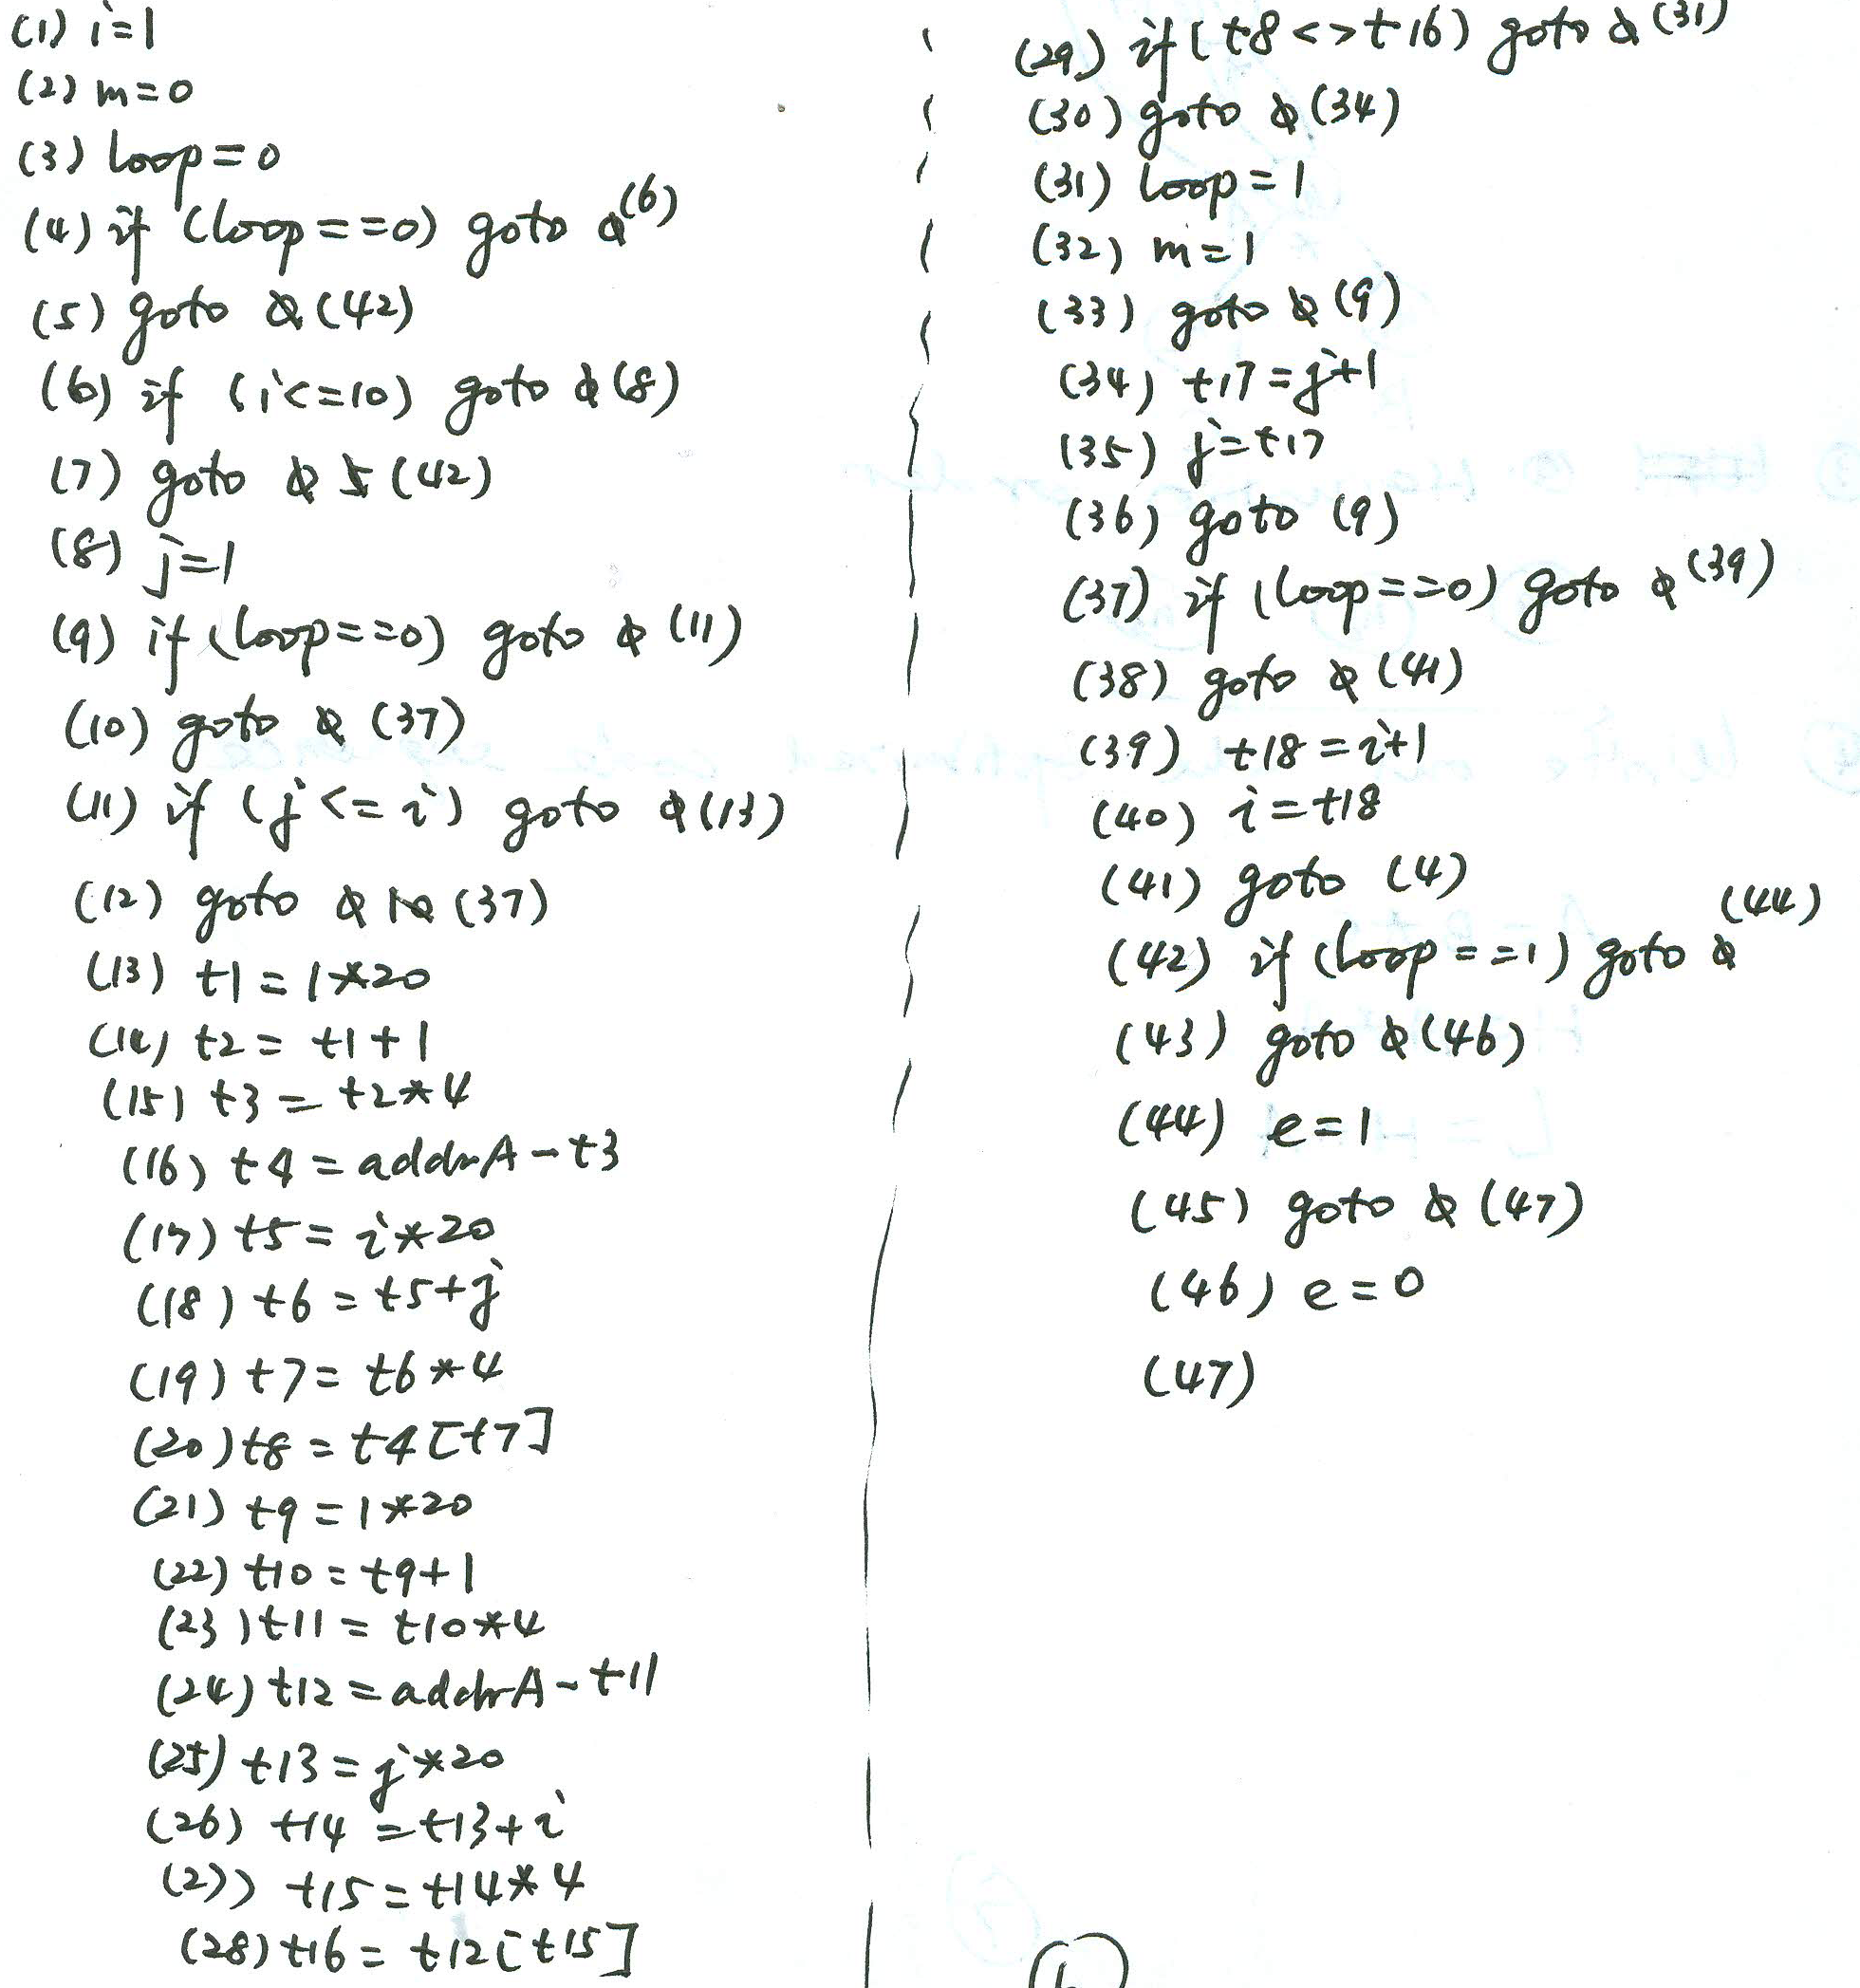 (1) i=1
(2) m=0
(3) loop=0
(4) if (loop==0) goto (6)
(5) goto (42)
(6) if (i<=10) goto (8)
(7) goto (42)
(8) j=1
(9) if (loop==0) goto (11)
(10) goto (37)
(11) if (j<=i) goto (13)
(12) goto (37)
(13) t1=1*20
(14) t2=t1+1
(15) t3=t2*4
(16) t4=addrA-t3
(17) t5=i*20
(18) t6=t5+j
(19) t7=t6*4
(20) t8=t4[t7]
(21) t9=1*20
(22) t10=t9+1
(23) t11=t10*4
(24) t12=addrA-t11
(25) t13=j*20
(26) t14=t13+i
(27) t15=t14*4
(28) t16=t12[t15]
(29) if (t8<>t16) goto (31)
(30) goto (34)
(31) loop=1
(32) m=1
(33) goto (9)
(34) t17=j+1
(35) j=t17
(36) goto (9)
(37) if (loop==0) goto (39)
(38) goto (41)
(39) t18=i+1
(40) i=t18
(41) goto (4)
(42) if (loop==1) goto (44)
(43) goto (46)
(44) e=1
(45) goto (47)
(46) e=0
(47)